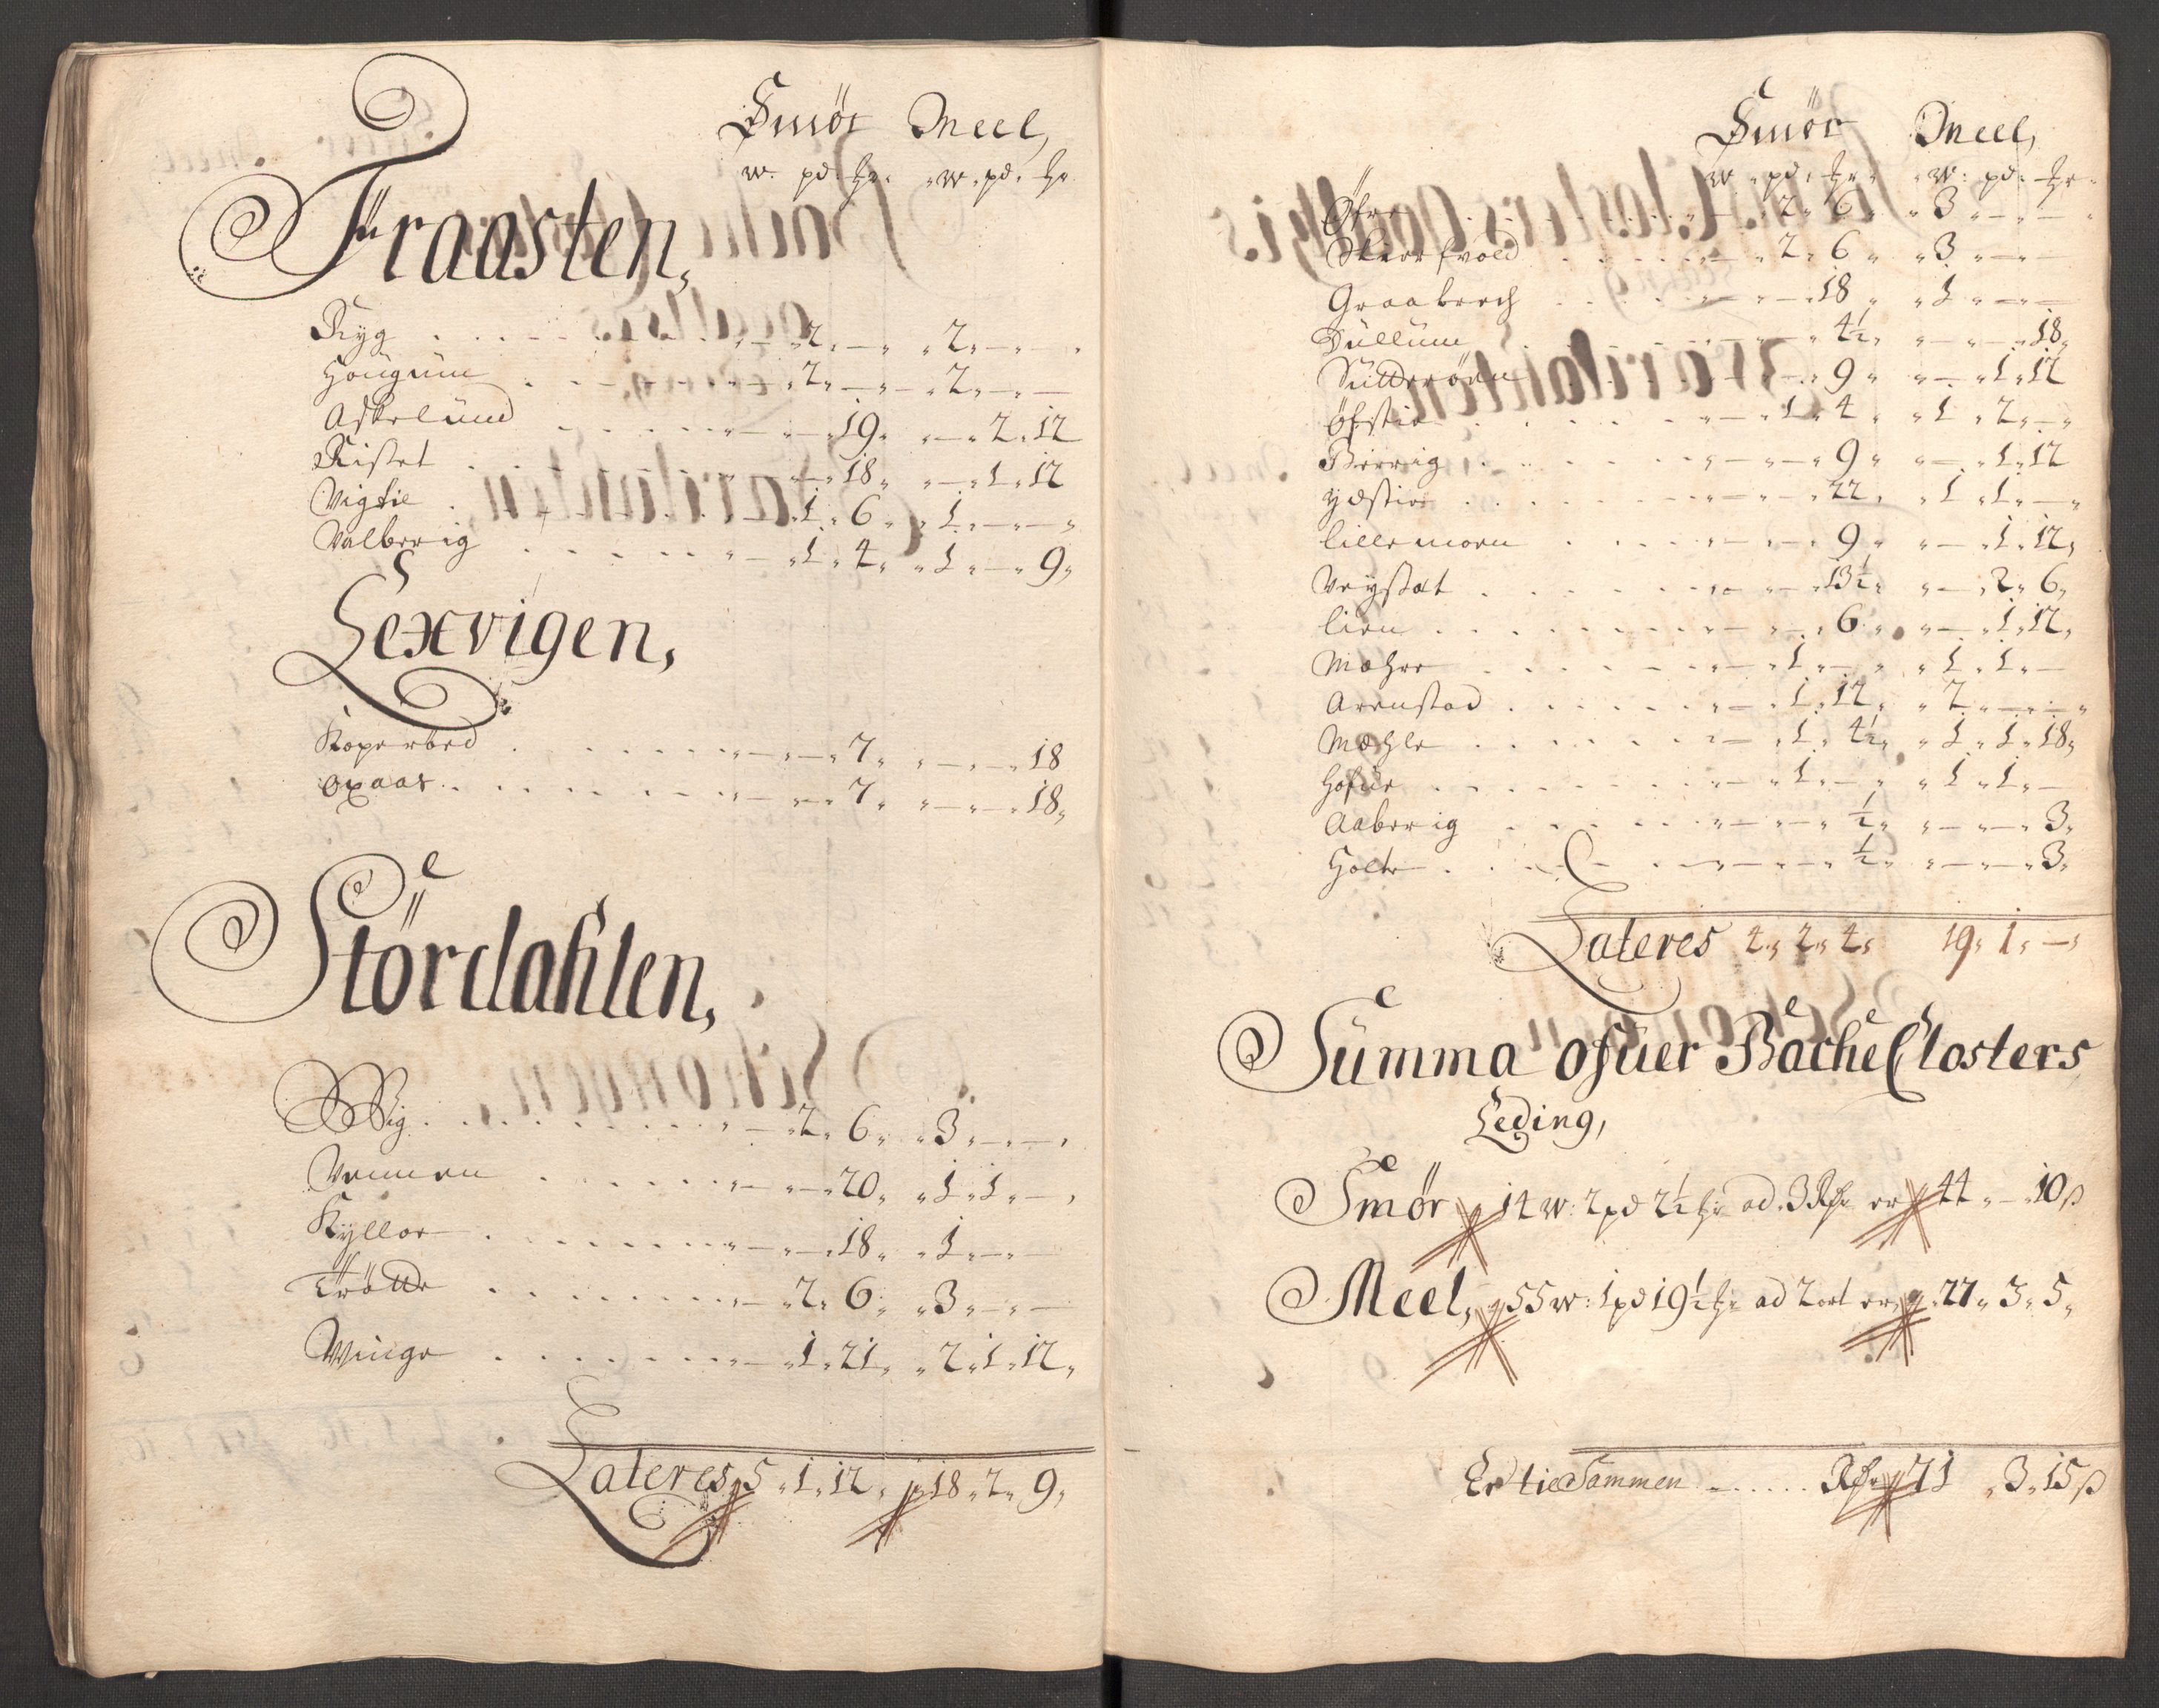 Smör Meel,
w. pd. hr. w. pd. hr
Fraasten,
Ryg . . . . . „ — „ 2 „ — „ „ 2 „ — „ — „
Hougum . . . . . „ — „ 2 „ — „ „ 2 „ — „ —
Askelund . . . . . „ — „ — „ 19 „ „ — „ 2 „ 12
Risset . . . . . „ — „ — „ 18 „ „ — „ 1 „ 12
Vigtie . . . . . „ — „ 1 „ 6 „ „ 1 „ — „ — „
Valberrig . . . . . „ — „ 1 „ 4 „ „ 1 „ — „ 9 „
Lexvigen,
Koperöed . . . . . „ — „ — „ 7 „ „ — „ — „ 18
Oxaas . . . . . „ — „ — „ 7 „ „ — „ — „ 18 „
Stördahlen,
Big . . . . . „ — „ 2 „ 6 „ „ 3 „ — „ — „
Vennen . . . . . „ — „ — „ 20 „ „ 1 „ 1 „ — „
Kylloe . . . . . „ — „ — „ 18 „ „ 1 „ — „ —
Tröitte . . . . . „ — „ 2 „ 6 „ „ 3 „ — „ —
Winge . . . . . „ — „ 1 „ 21 „ „ 2 „ 1 „ 12 „
Lateres „ 5 „ 1 „ 12 „ „ 18 „ 2 „ 9 „
Smör Meel,
w. pd. hr. w. pd. hr
Öfre . . . . . „ — „ 2 „ 6 „ „ 3 „ — „ —
Skierfvold . . . . . „ — „ 2 „ 6 „ „ 3 „ — „ —
Graabrech . . . . . „ — „ — „ 18 „ „ 1 „ — „ —
Dullum . . . . . „ — „ — „ 4½ „ „ — „ — „ 18 „
. . . . . „ — „ — „ 9 „ „ — „ 1 „ 12
Öfstie . . . . . „ — „ 1 „ 4 „ „ 1 „ 2 „ — „
Berrig . . . . . „ — „ — „ 9 „ „ — „ 1 „ 12
Ydstie . . . . . „ — „ — „ 22 „ „ 1 „ 1 „ — „
lillemoen . . . . . „ — „ — „ 9 „ „ — „ 1 „ 12 „
Veystat . . . . . „ — „ — „ 13½ „ „ — „ 2 „ 6 „
lien . . . . . „ — „ — „ 6 „ „ — „ 1 „ 12 „
Mæhre . . . . . „ — „ 1 „ — „ „ 1 „ 1 „ —
Arenstad . . . . . „ — „ 1 „ 12 „ „ 2 „ — „ — „
Mæhle . . . . . „ — „ 1 „ 4½ „ „ 1 „ 1 „ 18 „
Hofue . . . . . „ — „ 1 „ — „ „ 1 „ 1 „ —
Aaberrig . . . . . „ — „ — „ ½ „ „ — „ — „ 3 „
Holte . . . . . „ — „ — „ ½ „ „ — „ — „ 3 „
Lateres 4 „ 2 „ 4 „ 19 „ 1 „ — „
Summa ofuer Bache Closters
Leding,
Smör „ 14 w: 2 pd 2½ hr ad 3 Rdr er 44 „ — „ 10 ß
Meel, „ 55 w: 1 pd 19½ hr ad 2 ort er „ 27 „ 3 „ 5 „
Er tiesammen . . . . . Rdr 71 „ 3 „ 15 ß